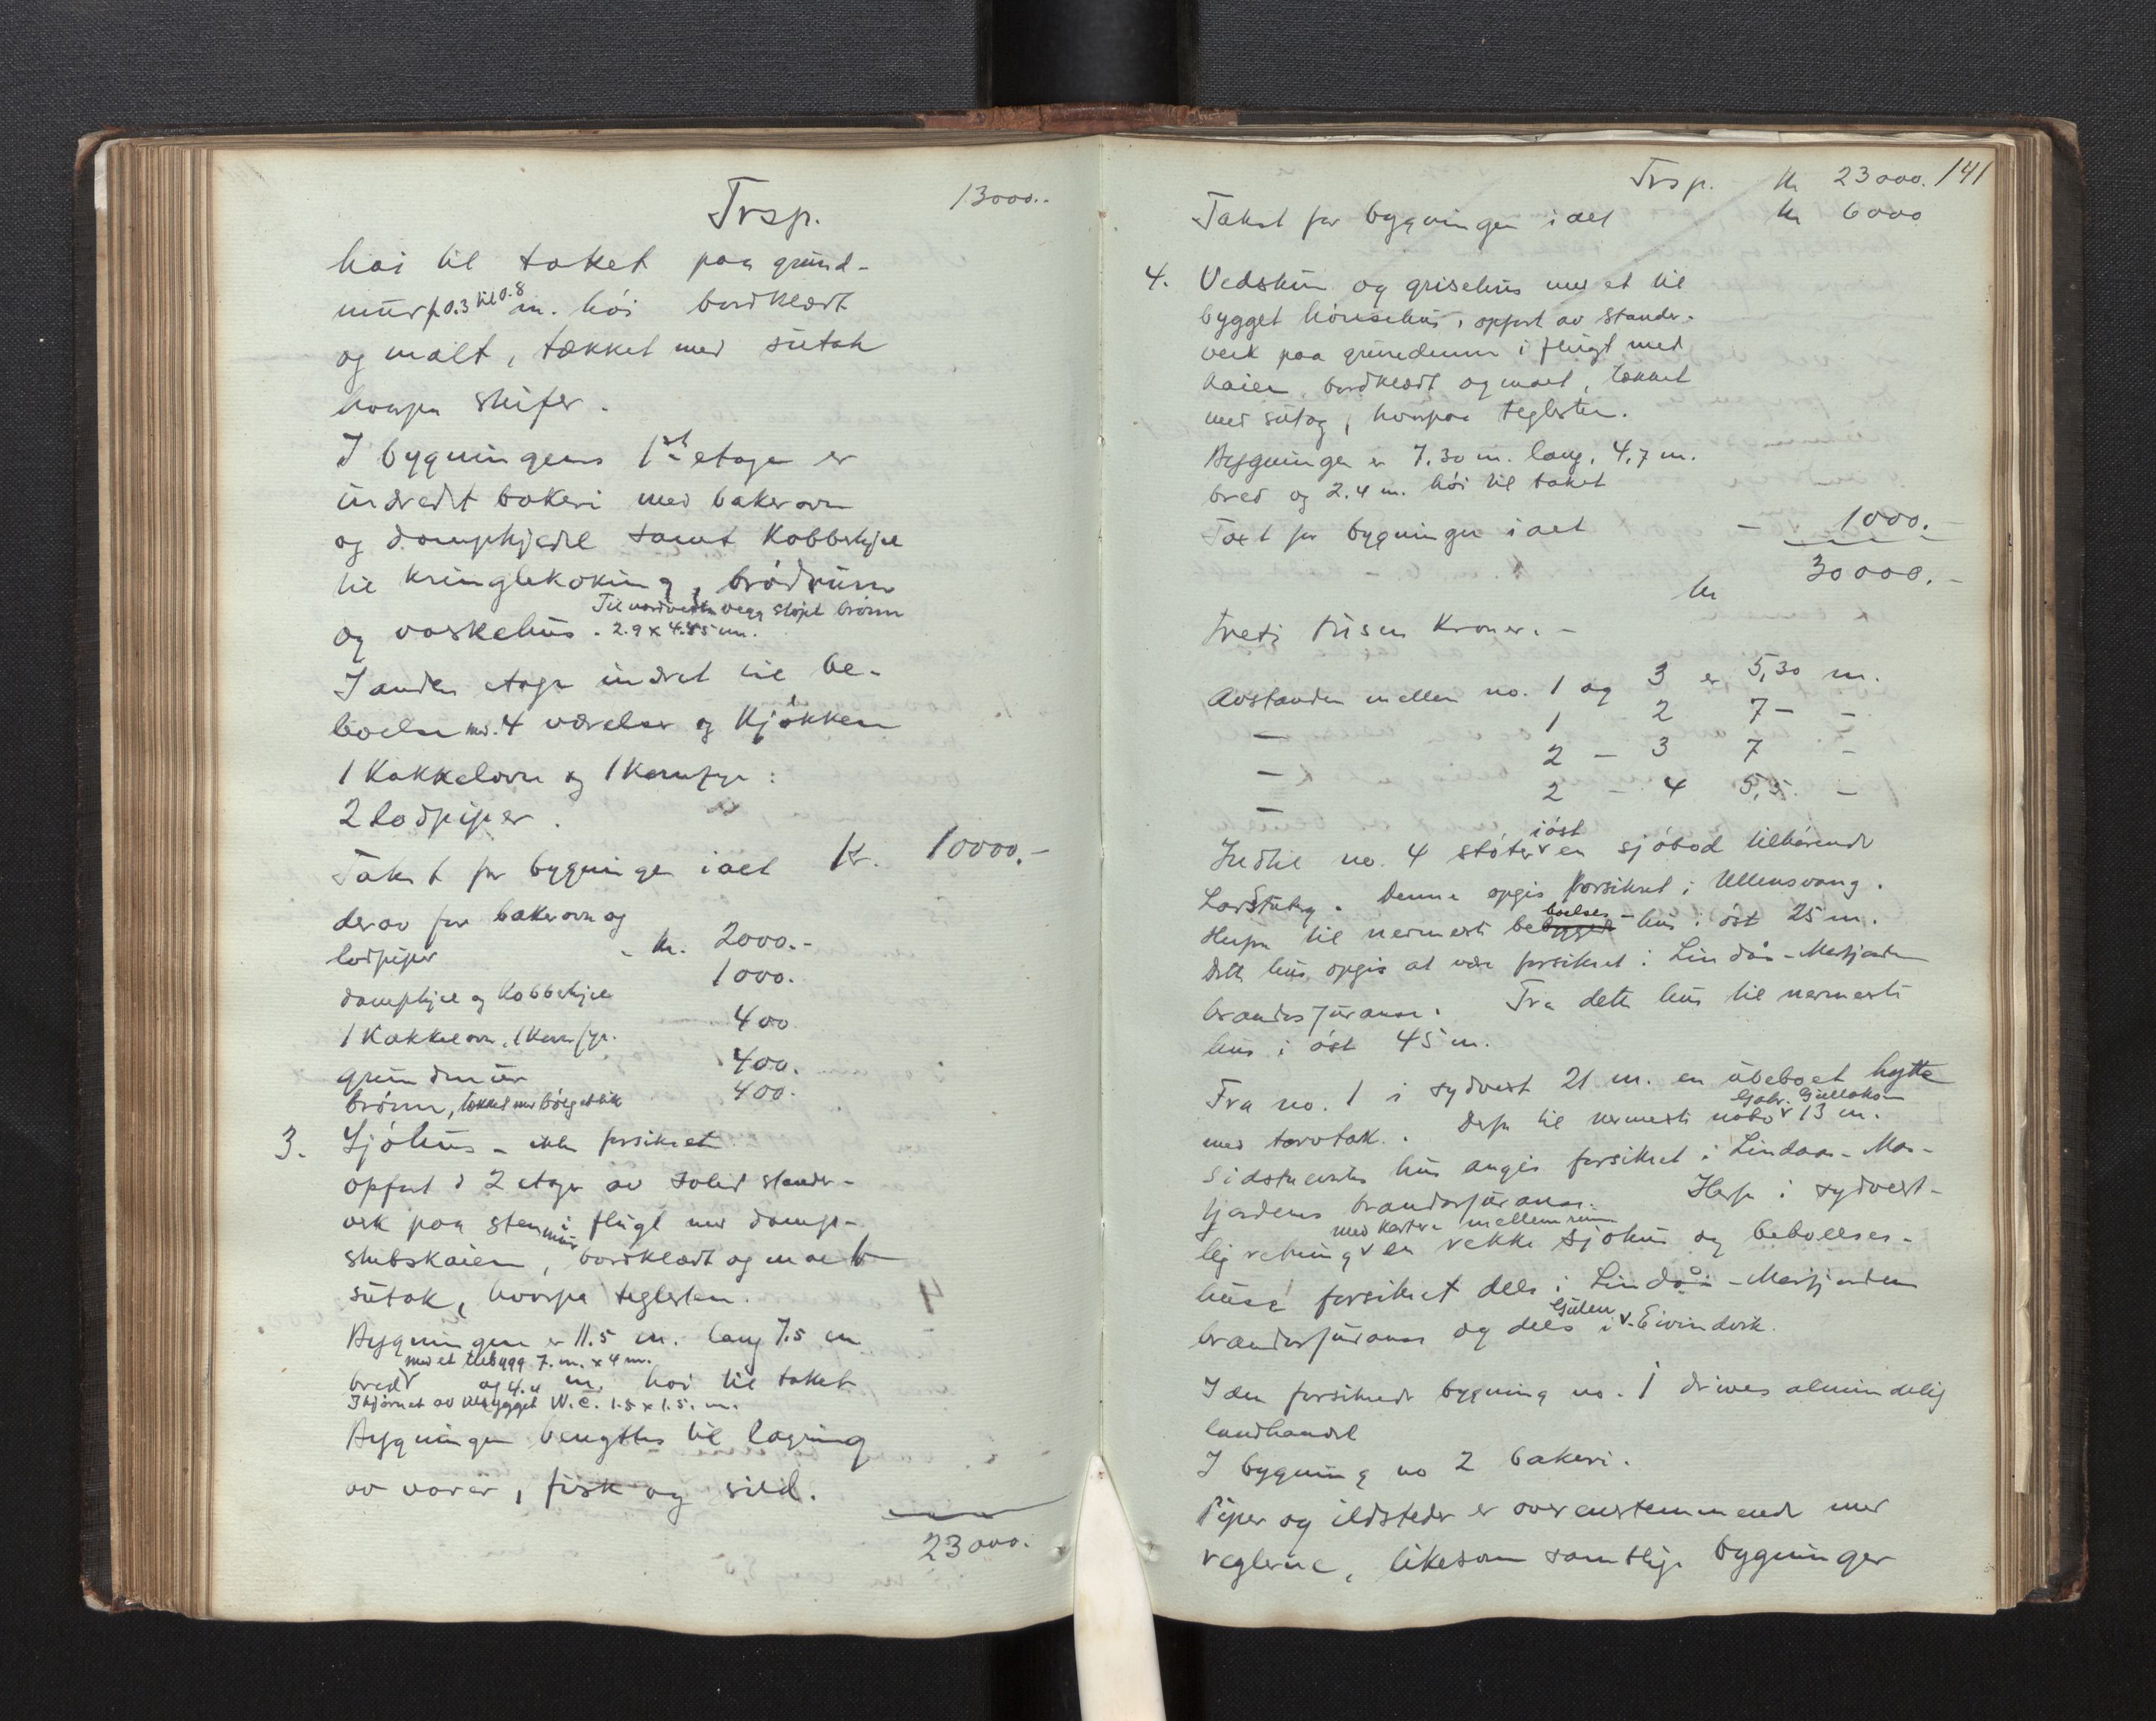 Trsp. 13000..
høi til taket paa grund-
mur fr 0.3 til 0.8 m. høi bordklædt
og malt, tækket med sutak
hvorpa skifer.
I bygningens 1ste etage er
indredt bakeri med bakerovn
og dampkjedel samt Kobberkjel
til kringlekoking, brødrum
Til nordvestre vegg støpt brønn
og vaskehus. 2.9 x 4.45 m.
I anden etage indret til be-
boelse med 4 værelser og kjøkken
1 Kakkelovn og 1 Komfyr:
2 lodpiper.
Takst for bygningen ialt Kr. 10000.-
derav for bakerovn og
lodpiper - kr. 2000.-
dampkjel og Kobberkjel 1000.
1 Kakkelovn, 1 Komfyr. 400
grundmur 400.
brønn, tækket med bølgeblik 400.
3. Sjøhus - ikke forsikret
opført i 2 etager av solid stender-
verk paa stenmur i flugt med damp-
skibskaien, bordklædt og malt
sutak, hvorpa teglsten.
Bygningen er 11.5 m. lang 7.5 m
med et tilbygg 7. m. x 4 m.
bred og 4.4 m. høi til taket
I hjørnet av tilbygget W.C. 1.5 x 1.5. m.
Bygningen benyttes til lagring
av varer, fisk og sild.
23000.
Trsp. kr 23000. 141
Takst for bygningen ialt kr 6000
4. Vedskur og grisehus med et til
bygget hønsehus, opført av stender-
verk paa grundmur i flugt med
kaien, bordklædt og malt, tækket
med sutag, hvorpaa teglsten.
Bygningen er 7.30 m. lang, 4,7 m.
bred og 2.4 m. høi til taket
Taxt for bygningen ialt - 1000.-
kr 30000.-
treti tusen Kroner.-
Avstanden mellem no. 1 og 3 er 5,30 m.
- 1 2 7 - -
- 2 - 3 7 -
- 2 - 4 5,5. -
i øst
Indtil no. 4 støter en sjøbod tilhørende
Denne opgis forsikret i Ullensvang.
boelses
Herfra til nermeste bebygget-hus i øst 25 m.
Dette hus opgis at være forsikret i Lindås-Masfjorden
brandassuranse. Fra dette hus til nermeste
hus i øst 45 m.
Fra no. 1 i sydvest 21 m. en ubeboet hytte
Gabr. Gullaksen
med torvtak. Derfra til nermeste nabo 13 m.
Sidstnevnte hus angis forsikret i Lindaas-Mas-
fjordens brandassuranse. Herfra i sydvest-
med kortere mellemrum
lig retning en rekke sjøhus og beboelses-
huse forsikret dels i Lindås-Masfjorden
Gulen
brandassuranse og dels i - Eivindvik.
I den forsikrede bygning no. 1 drives almindelig
landhandel
I bygning no 2 bakeri.
Piper og ildsteder er overenstemmende med
reglerne, likesom samtlige bygninger